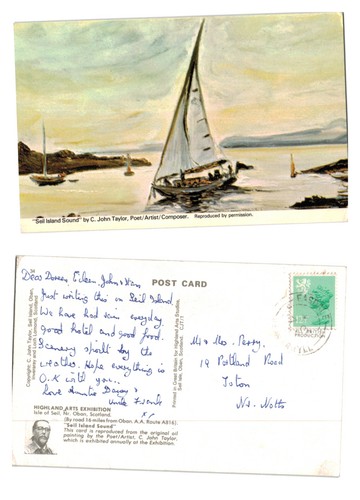 "Seil Island Sound" by C. John Taylor, Poet/Artist/Composer. Reproduced by permission.
Dear Doreen, Eileen, John & Stan
Just writing this on Seil Island.
We have had rain everyday.
Good hotel and good food.
Scenery spoilt by the
weather. Hope everything is
O.K with you...
love Auntie
Uncle Frank
xx
HIGHLAND ARTS EXHIBITION
Isle of Seil, Nr. Oban, Scotland.
(By road 16 miles from Oban, A.A. Route A816).
"Seil Island Sound"
This card is reproduced from the original oil
painting by the Poet/Artist, C. John Taylor,
which is exhibited annually at the Exhibition.
Copyright: C. John Taylor, Seil Island, Oban,
Inverary and Loch Lomond, Scotland.
POST CARD
Printed in Great Britain for Highland Arts Studios,
Seil Isle, Scotland.
Mr & Mrs. Perry.
19 Portland Road
Toton
Nr. Notts